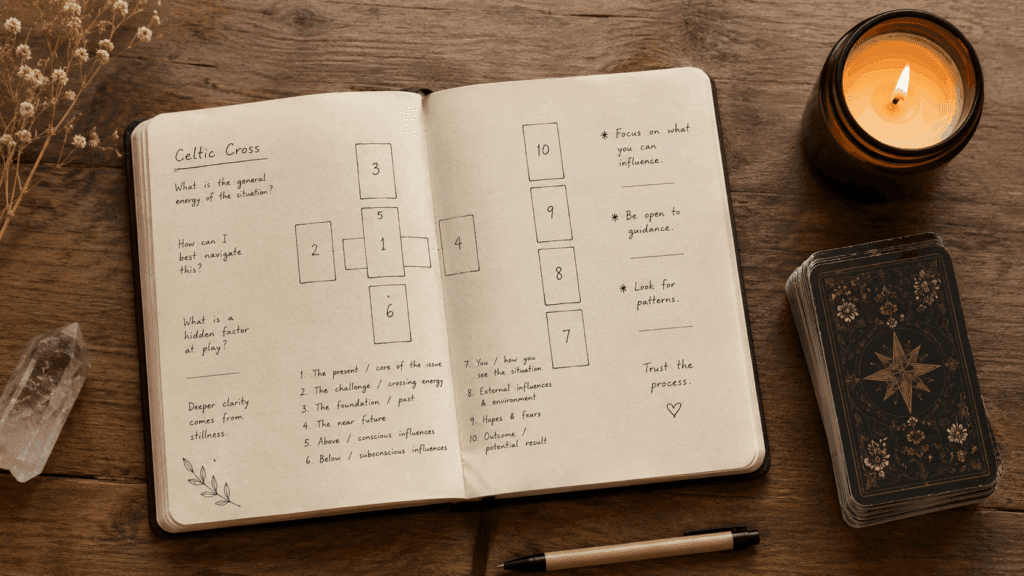 Celtic Cross
What is the general
energy of the situation?
How can I
best navigate
this?
What is a
hidden factor
at play?
Deeper clarity
comes from
stillness.
3
5
2
1
4
6
1. The present / core of the issue
2. The challenge / crossing energy
3. The foundation / past
4. The near future
5. Above / conscious influences
6. Below / subconscious influences
10
9
8
7
7. You / how you
see the situation
8. External influences
& environment
9. Hopes & fears
10. Outcome /
potential result
* Focus on what
you can
influence.
* Be open to
guidance.
* Look for
patterns.
Trust the
process.